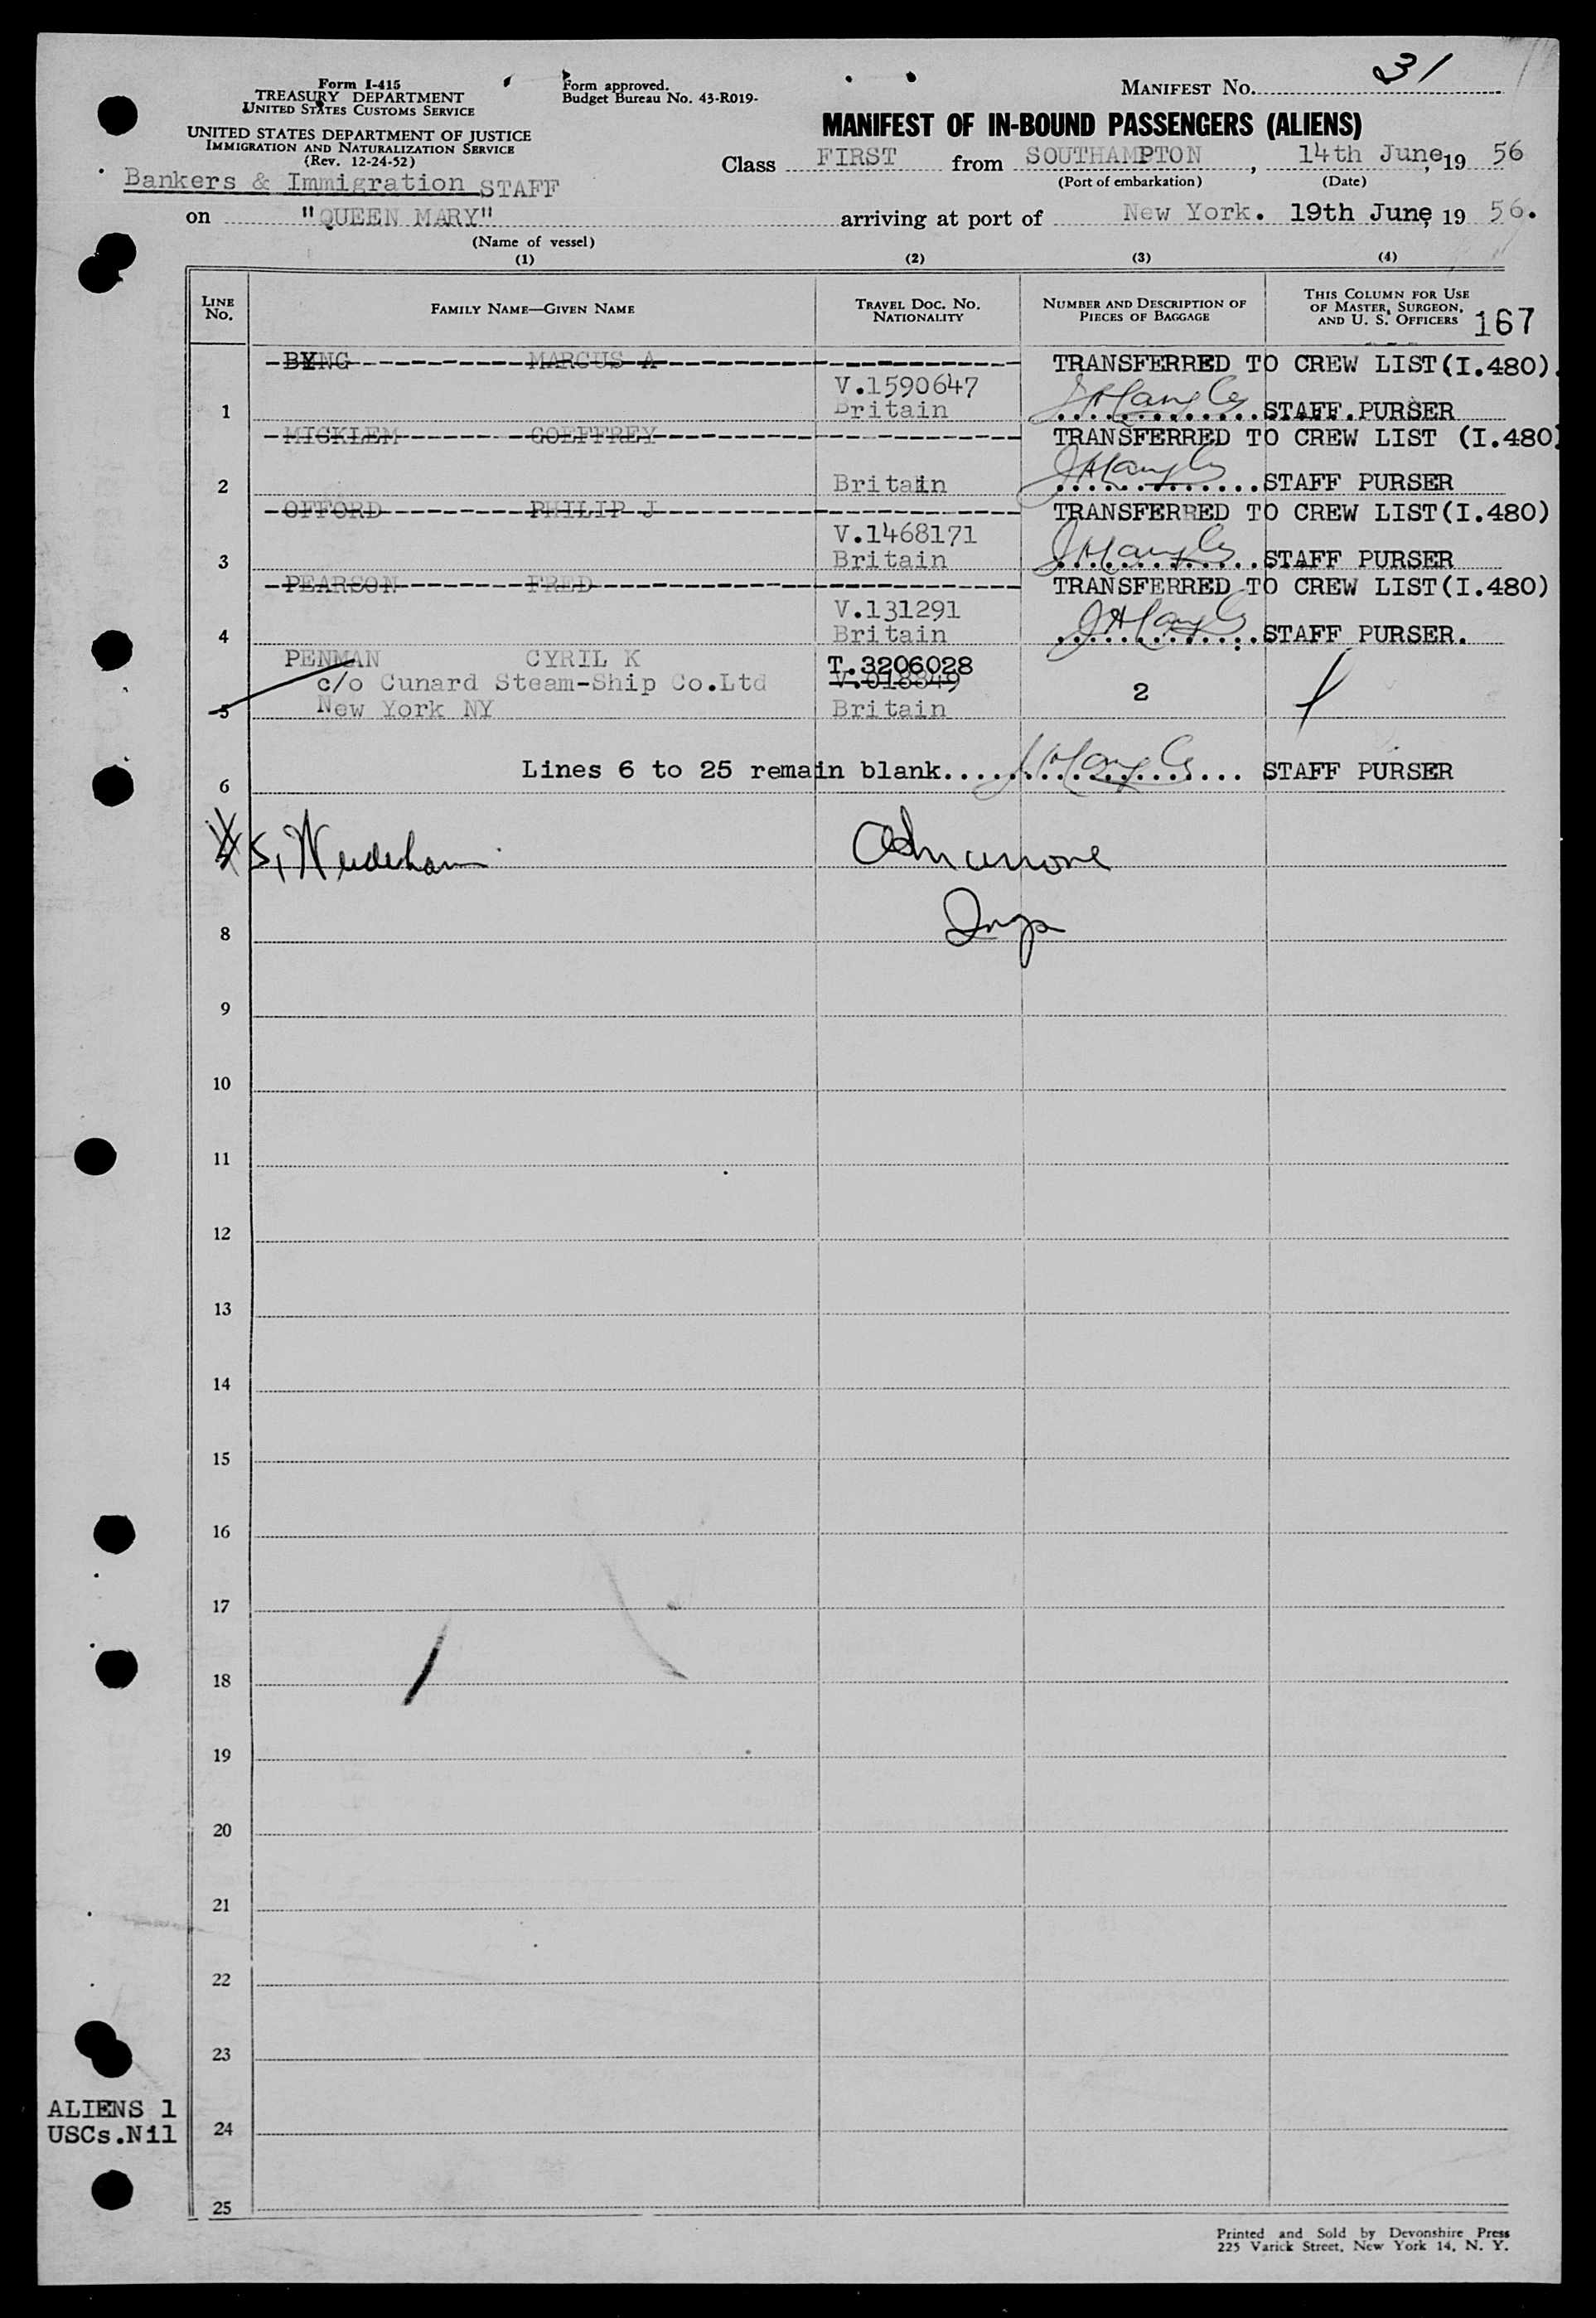 Form I-415
TREASURY DEPARTMENT
UNITED STATES CUSTOMS SERVICE
UNITED STATES DEPARTMENT OF JUSTICE
IMMIGRATION AND NATURALIZATION SERVICE
(Rev. 12-24-52)
Form approved.
Budget Bureau No. 43-R019-
MANIFEST NO. 31
MANIFEST OF IN-BOUND PASSENGERS (ALIENS)
Class FIRST from SOUTHAMPTON, 14th June, 19 56
(Port of embarkation) (Date)
Bankers & Immigration STAFF
on "QUEEN MARY" arriving at port of New York. 19th June, 19 56.
(Name of vessel)
(1) (2) (3) (4)
LINE No. FAMILY NAME—GIVEN NAME TRAVEL DOC. NO. NATIONALITY NUMBER AND DESCRIPTION OF PIECES OF BAGGAGE THIS COLUMN FOR USE OF MASTER, SURGEON, AND U. S. OFFICERS 167
BYNG MARCUS A TRANSFERRED TO CREW LIST(I.480).
V.1590647
1 Britain STAFF.PURSER
MICKLEM GOEFFREY TRANSFERRED TO CREW LIST (I.480)
2 Britain STAFF PURSER
OFFORD PHILIP J TRANSFERRED TO CREW LIST(I.480)
V.1468171
3 Britain STAFF PURSER
PEARSON FRED TRANSFERRED TO CREW LIST(I.480)
V.131291
4 Britain STAFF PURSER.
PENMAN CYRIL K T.3206028
c/o Cunard Steam-Ship Co.Ltd V.018849 2
5 New York NY Britain
6 Lines 6 to 25 remain blank.................... STAFF PURSER
Insp
8
9
10
11
12
13
14
15
16
17
18
19
20
21
22
23
ALIENS 1
USCs.Nil
24
25
Printed and Sold by Devonshire Press
225 Varick Street, New York 14, N. Y.